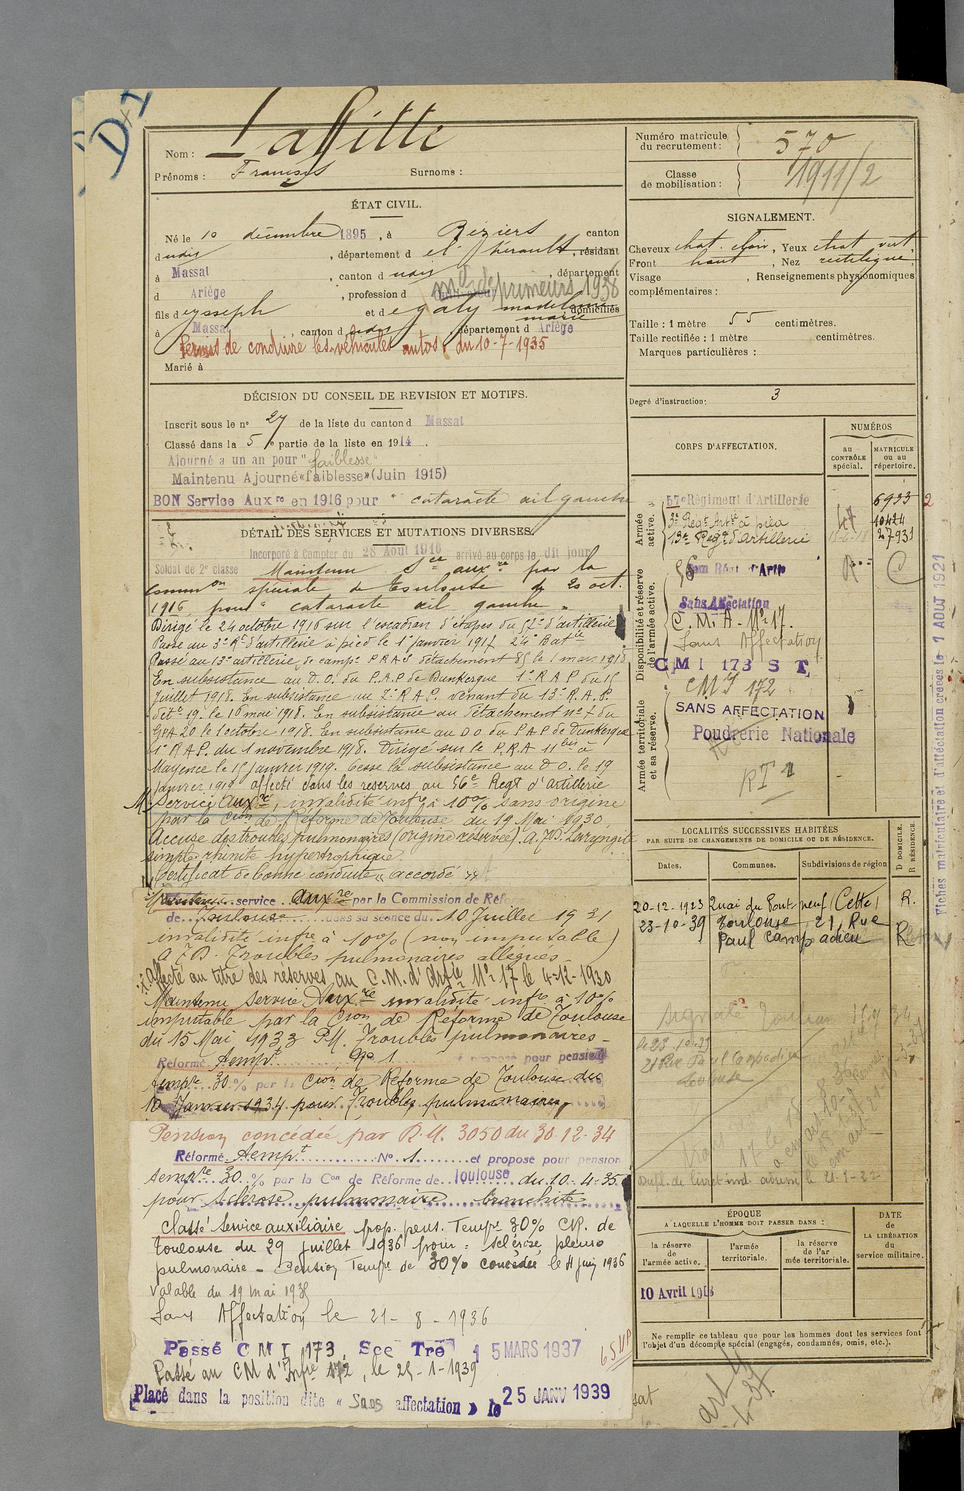 Nom : Laffitte
Prénoms : François Surnoms :
ÉTAT CIVIL.
Né le 10 décembre 1895, à Béziers canton
dudis, département d el' hérault, résidant
à Massat, canton d udis, département
d Ariège, profession d md de primeurs 1936
fils d yoseph et d egaly madeleine marie domiciliés
à Massat, canton d udis, département d Ariège
Permis de conduire les véhicules autos, du 10-7-1935
Marié à
DÉCISION DU CONSEIL DE REVISION ET MOTIFS.
Inscrit sous le n° 27 de la liste du canton d Massat
Classé dans la 5e partie de la liste en 1914.
Ajourné a un an pour "faiblesse"
Maintenu Ajourné «faiblesse» (Juin 1915)
BON Service Auxre en 1916 pour " cataracte œil gauche
DÉTAIL DES SERVICES ET MUTATIONS DIVERSES.
Incorporé à Compter du 28 Août 1916 arrivé au corps le dit jour
Soldat de 2e classe Maintenu Sce auxre par la
Common spéciale de Toulouse du 20 oct.
1916 pour " cataracte œil gauche "
Dirigé le 24 octobre 1916 sur l'escadron d'étapes du 57e d'artillerie
Passé au 3e Rt d'artillerie à pied le 1er janvier 1917 24e Batie
Passé au 13e artillerie de campe P.R.A.S détachement 85 le 1 mars 1918
En subsistance au D.O. du P.A.P de Dunkerque 1e R.A.P du 15
Juillet 1918. En subsistance au 7e R.A.P. venant du 13e R.A.P.
détt 19e le 16 mai 1918. En subsistance au détachement n° 7 du
GPA 20 le 1 octobre 1918. En subsistance au DO du P.A.P de Dunkerque
1e R.A.P. du 1 novembre 1918. Dirigé sur le P.R.A 11 bis à
Mayence le 15 janvier 1919. Cesse la subsistance au D O. le 19
janvier 1919 affecté dans les réserves au 56e Regt d'Artillerie
Mt Service Auxre, invalidité infre à 10% sans origine
par la Cion de Réforme de Toulouse du 19 Mai 1920.
Accuse des troubles pulmonaires (origine réservée). A.7B. Laryngite
simple rhinite hypertrophique
Certificat de bonne conduite « accordé »
Maintenu service Auxre par la Commission de Réf
de Toulouse dans sa séance du 10 Juillet 1921
invalidité infre à 10% (non imputable)
A 7B. Troubles pulmonaires allégués
Affecté au titre des réserves au C.M. d'Artie N° 17 le 4-12-1930
Maintenu Service Auxre invalidité infre à 10%
imputable par la Cion de Réforme de Toulouse
du 15 Mai 1933 P.M. Troubles pulmonaires
Réformé tempt N° 1 et proposé pour pension
tempre 30% par la Cion de Réforme de Toulouse du
10 Janvier 1934 pour Troubles pulmonaires
Pension concédée par R.M. 3050 du 30-12-34
Réformé tempt N° 1 et proposé pour pension
tempre 30 % par la Con de Réforme de Toulouse du 10-4-35
pour sclérose pulmonaire bronchite
Classé service auxiliaire prop. pens. Tempre 30% CR. de
Toulouse du 29 juillet 1936 pour : sclérose pleuro
pulmonaire - Pension Tempre de 30% concédée le 4 juin 1936
valable du 19 mai 1935
Sans Affectation le 21-8-1936
Passé C M I 173 Sec Tre 15 MARS 1937
Passé au CM d'Infie 172, le 25-1-1939
Placé dans la position dite « Sans affectation » le 25 JANV 1939
Numéro matricule du recrutement : 570
Classe de mobilisation : 1911/2
SIGNALEMENT.
Cheveux chat. clair, Yeux chat. vert,
Front haut, Nez rectiligne,
Visage, Renseignements physionomiques
complémentaires :
Taille : 1 mètre 55 centimètres.
Taille rectifiée : 1 mètre centimètres.
Marques particulières :
Degré d'instruction : 3
CORPS D'AFFECTATION.
NUMÉROS
au CONTRÔLE spécial.
MATRICULE ou au répertoire.
Armée active.
57e Régiment d'Artillerie 6933
3e Regt Artie à pied 10424
13e Regt d'artillerie 27931
Disponibilité et réserve de l'armée active.
56em Rgt d'Artie
Sans Affectation
C.M.A. N° 17.
Sans Affectation
C M I 173 S T
CMI 172
Armée territoriale et sa réserve.
SANS AFFECTATION
Poudrerie Nationale
RI 1
LOCALITÉS SUCCESSIVES HABITÉES
PAR SUITE DE CHANGEMENTS DE DOMICILE OU DE RÉSIDENCE.
Dates. Communes. Subdivisions de région
D DOMICILE. R RÉSIDENCE.
20-12-1923 Quai du Pont neuf (Cette) R.
23-10-39 Toulouse, 21, Rue
Paul Camp adieu R
Le 23-10-39
21 Rue Paul Campadieu
Toulouse
ÉPOQUE
A LAQUELLE L'HOMME DOIT PASSER DANS :
DATE DE LA LIBÉRATION du service militaire.
la réserve de l'armée active.
l'armée territoriale.
la réserve de l'armée territoriale.
10 Avril 1918
Ne remplir ce tableau que pour les hommes dont les services font
l'objet d'un décompte spécial (engagés, condamnés, omis, etc.).
Fiches matriculaire et d'affectation créées le 1 AOUT 1921